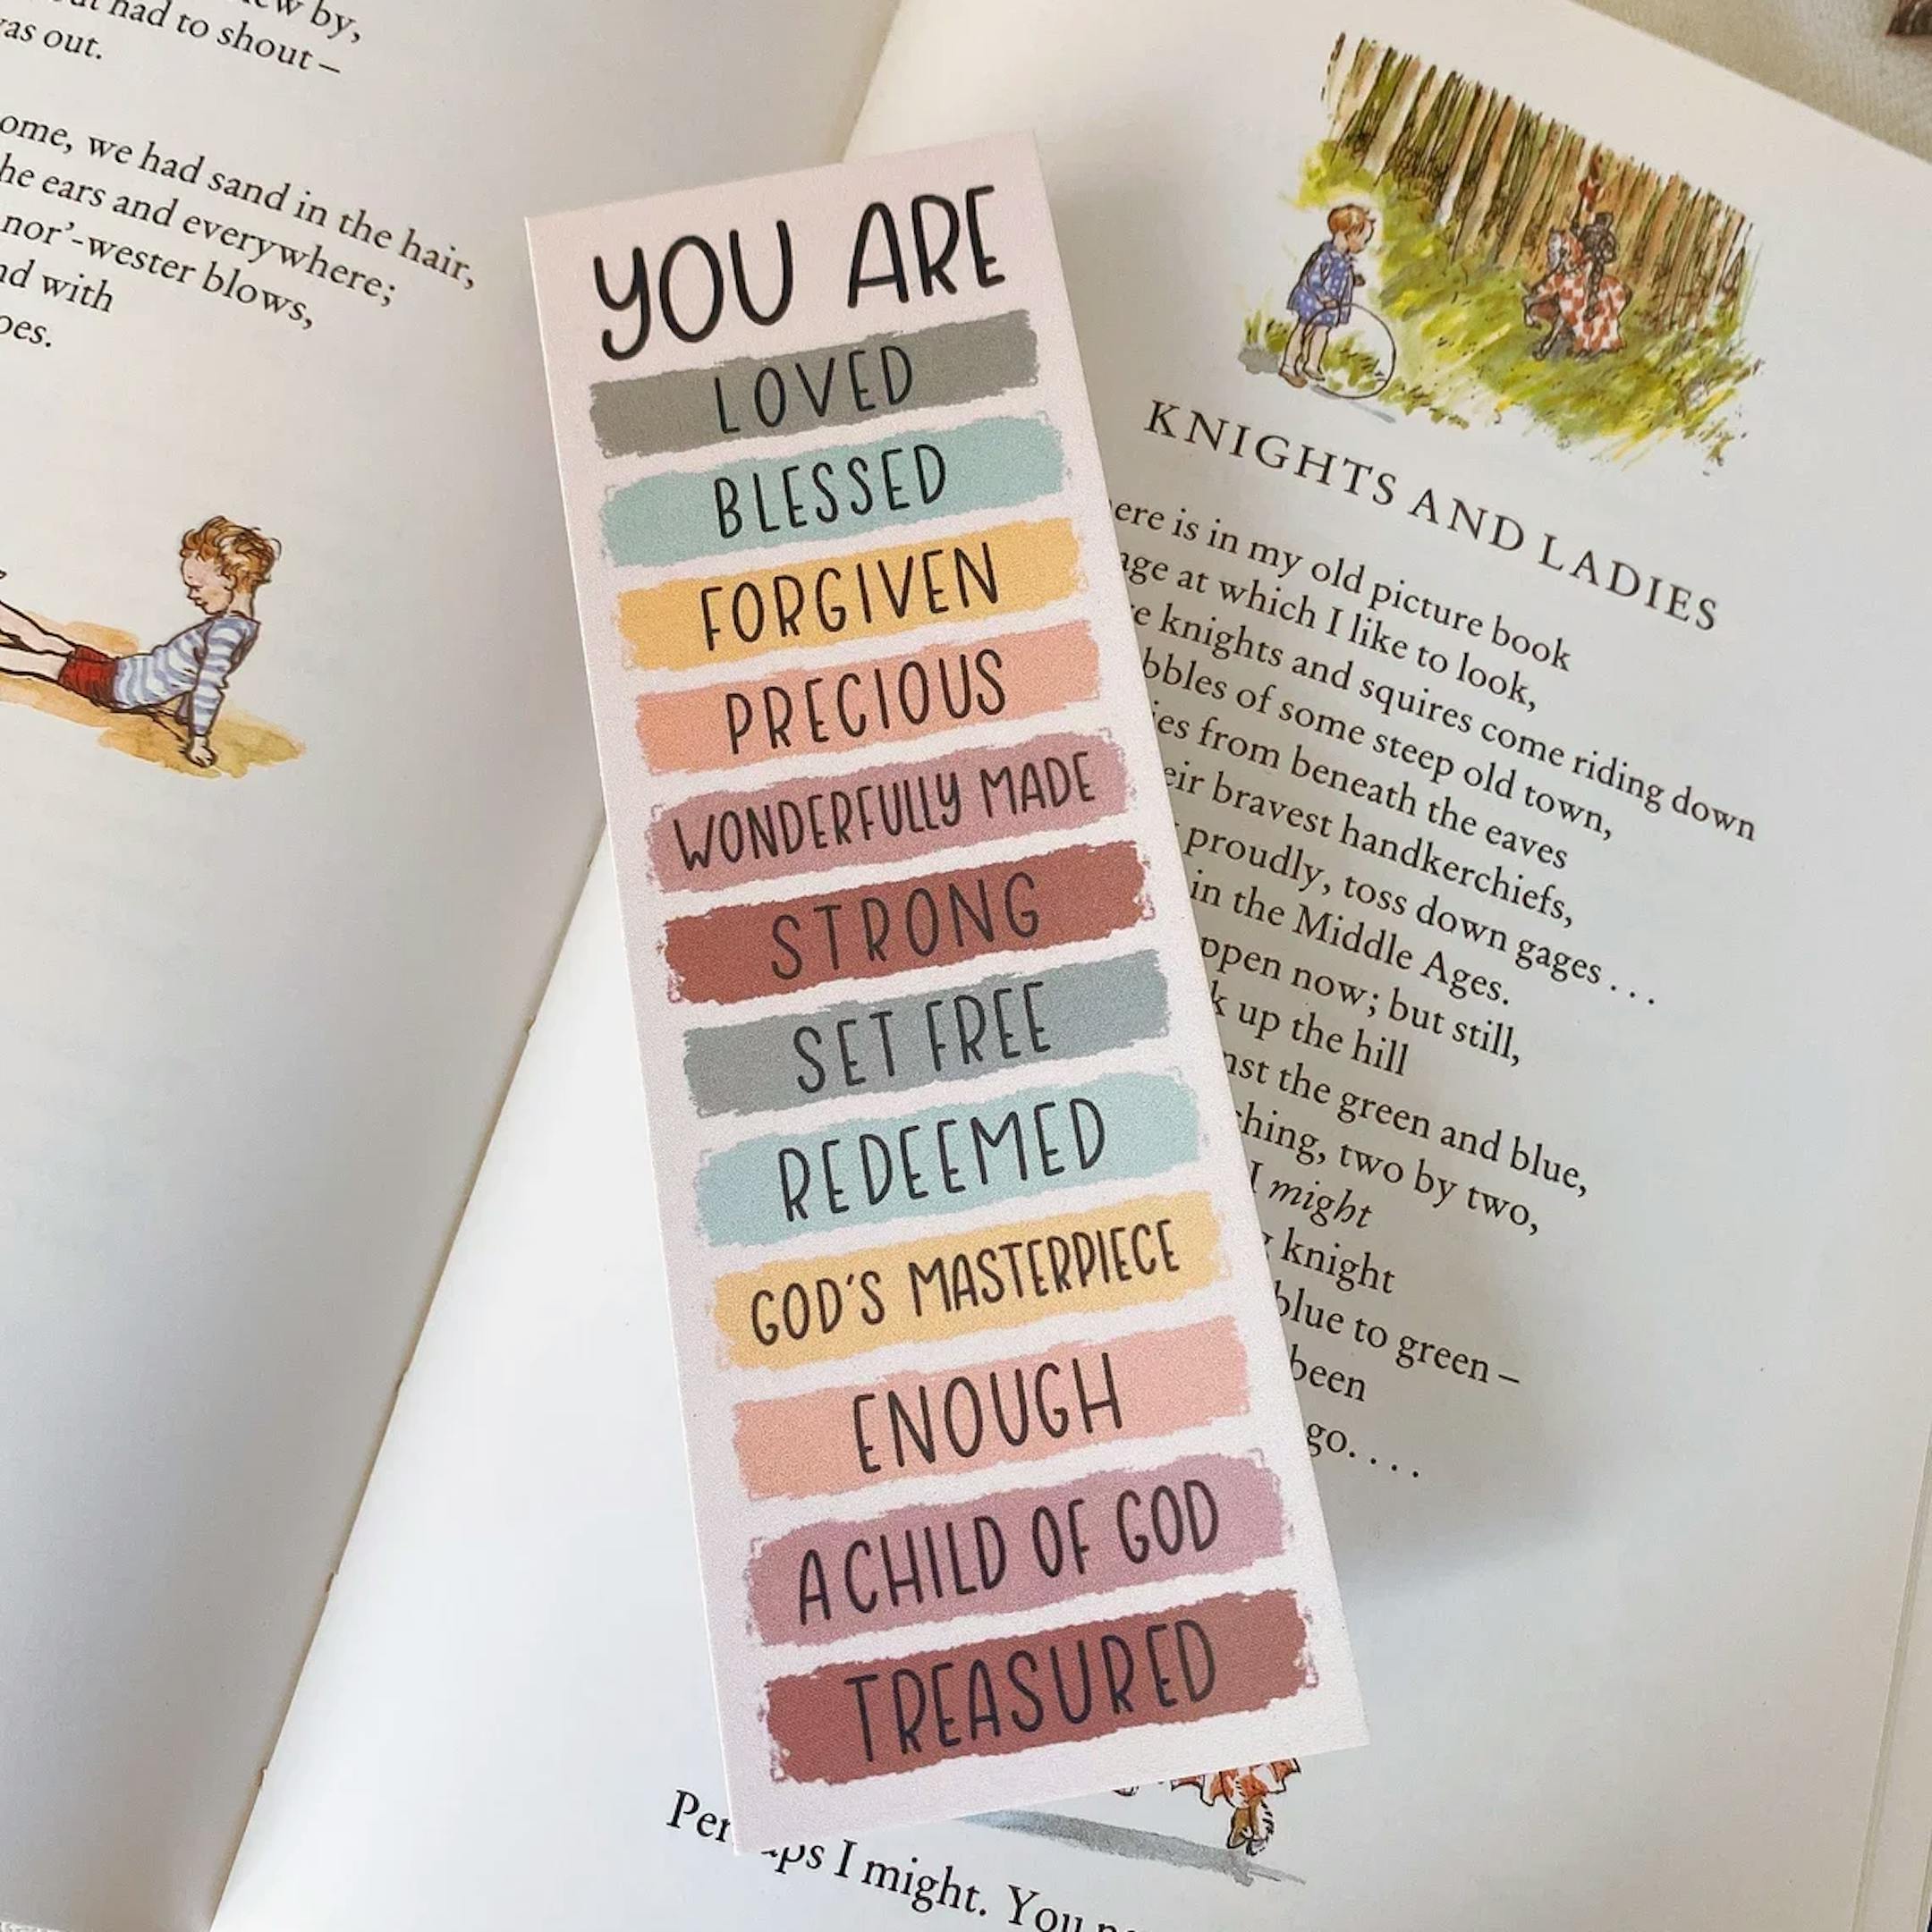 ew by,
had to shout –
as out.
ome, we had sand in the hair,
he ears and everywhere;
nor'-wester blows,
nd with
oes.
YOU ARE
LOVED
BLESSED
FORGIVEN
PRECIOUS
WONDERFULLY MADE
STRONG
SET FREE
REDEEMED
GOD'S MASTERPIECE
ENOUGH
A CHILD OF GOD
TREASURED
KNIGHTS AND LADIES
ere is in my old picture book
age at which I like to look,
e knights and squires come riding down
bbles of some steep old town,
ies from beneath the eaves
eir bravest handkerchiefs,
proudly, toss down gages . . .
in the Middle Ages.
ppen now; but still,
k up the hill
nst the green and blue,
ching, two by two,
I might
knight
blue to green –
been
go. . . .
Per ps I might. You